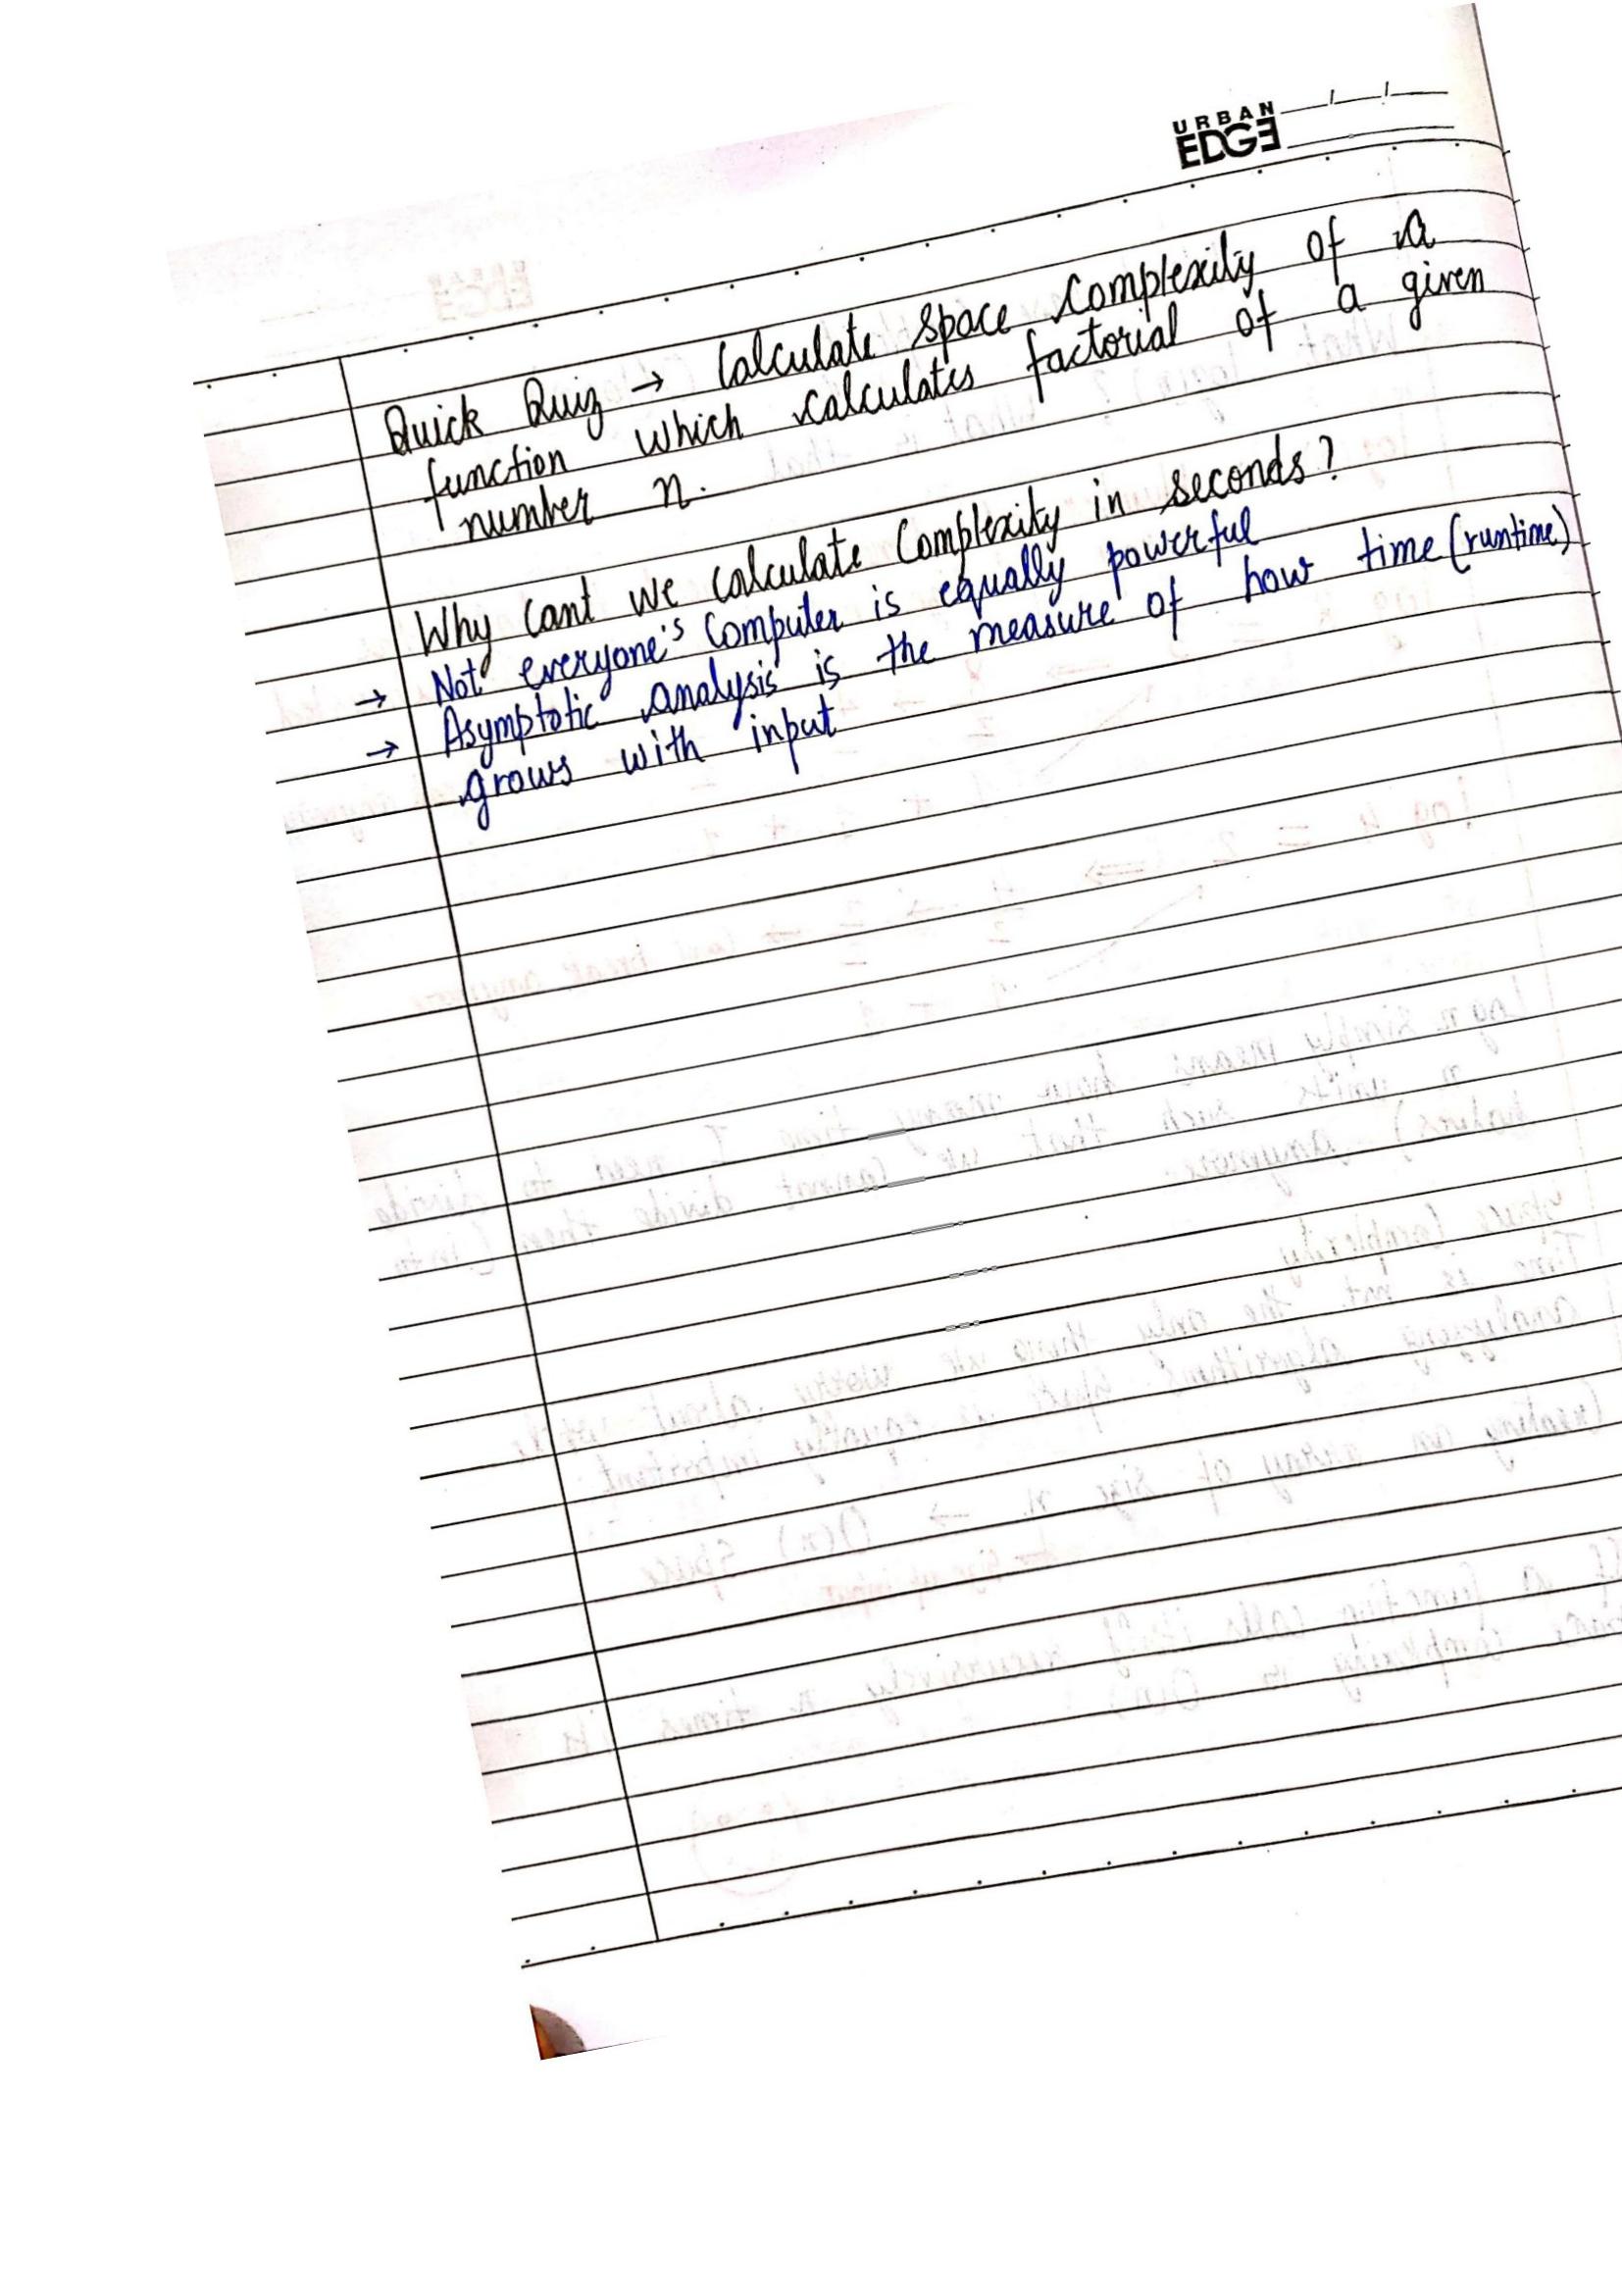 URBAN
EDGE
Quick Quiz → Calculate space complexity of a
function which calculates factorial of a given
number n.
Why cant we calculate Complexity in seconds?
→ Not everyone's Computer is equally powerful
→ Asymptotic analysis is the measure of how time (runtime)
grows with input